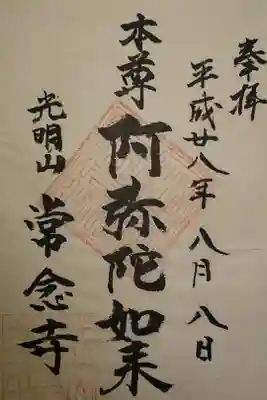 奉拝
平成廿八年八月八日
本尊
阿弥陀如来
光明山
常念寺